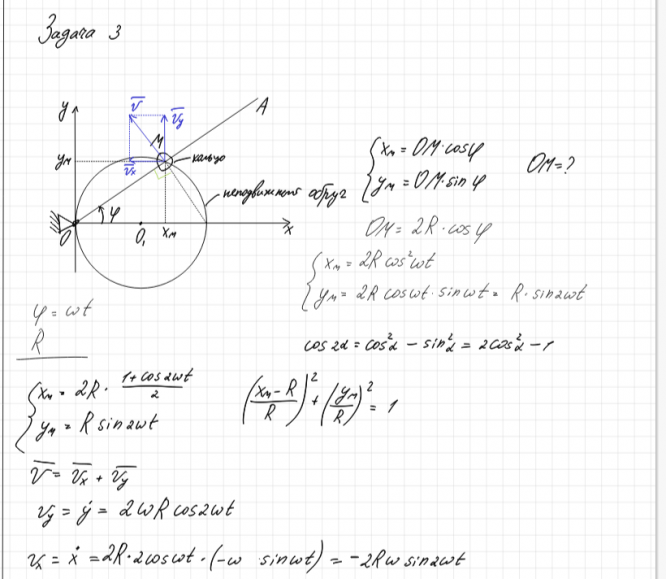 Задача 3
y
V̅
V̅y
A
M
yм
V̅x
кольцо
неподвижный обруч
φ
O
O₁
xм
x
{ xм = OM·cosφ
yм = OM·sin φ
OM = ?
OM = 2R·cos φ
{ xм = 2R cos²ωt
yм = 2R cosωt · sinωt = R·sin2ωt
φ = ωt
R
cos 2α = cos²α − sin²α = 2cos²α − 1
{ xм = 2R · (1+cos2ωt)/2
yм = R sin2ωt
((xм − R)/R)² + (yм/R)² = 1
V̅ = V̅x + V̅y
Vy = ẏ = 2ωR cos2ωt
Vx = ẋ = 2R·2cosωt · (−ω sinωt) = −2Rω sin2ωt